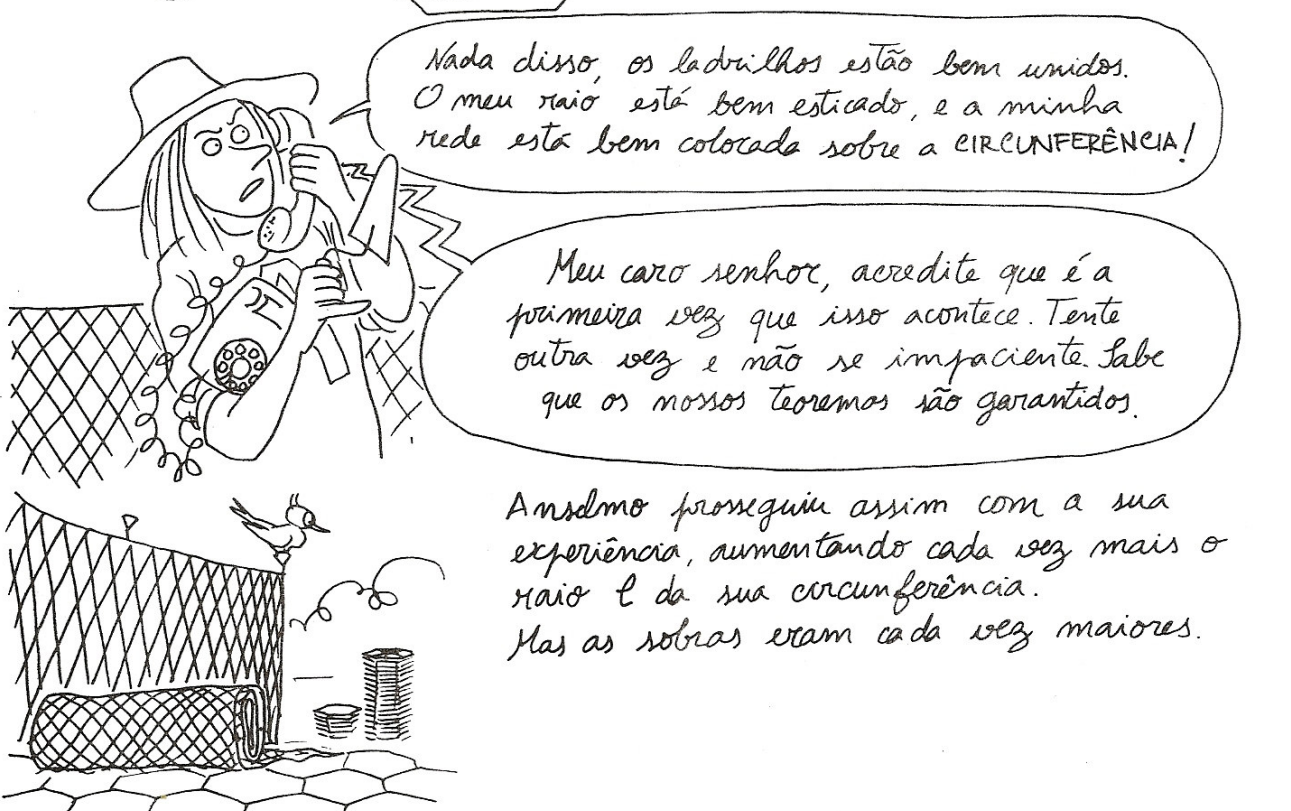 Nada disso, os ladrilhos estão bem unidos.
O meu raio está bem esticado, e a minha
rede está bem colocada sobre a CIRCUNFERÊNCIA!
Meu caro senhor, acredite que é a
primeira vez que isso acontece. Tente
outra vez e não se impaciente. Sabe
que os nossos teoremas são garantidos.
Anselmo prosseguiu assim com a sua
experiência, aumentando cada vez mais o
raio l da sua circunferência.
Mas as sobras eram cada vez maiores.